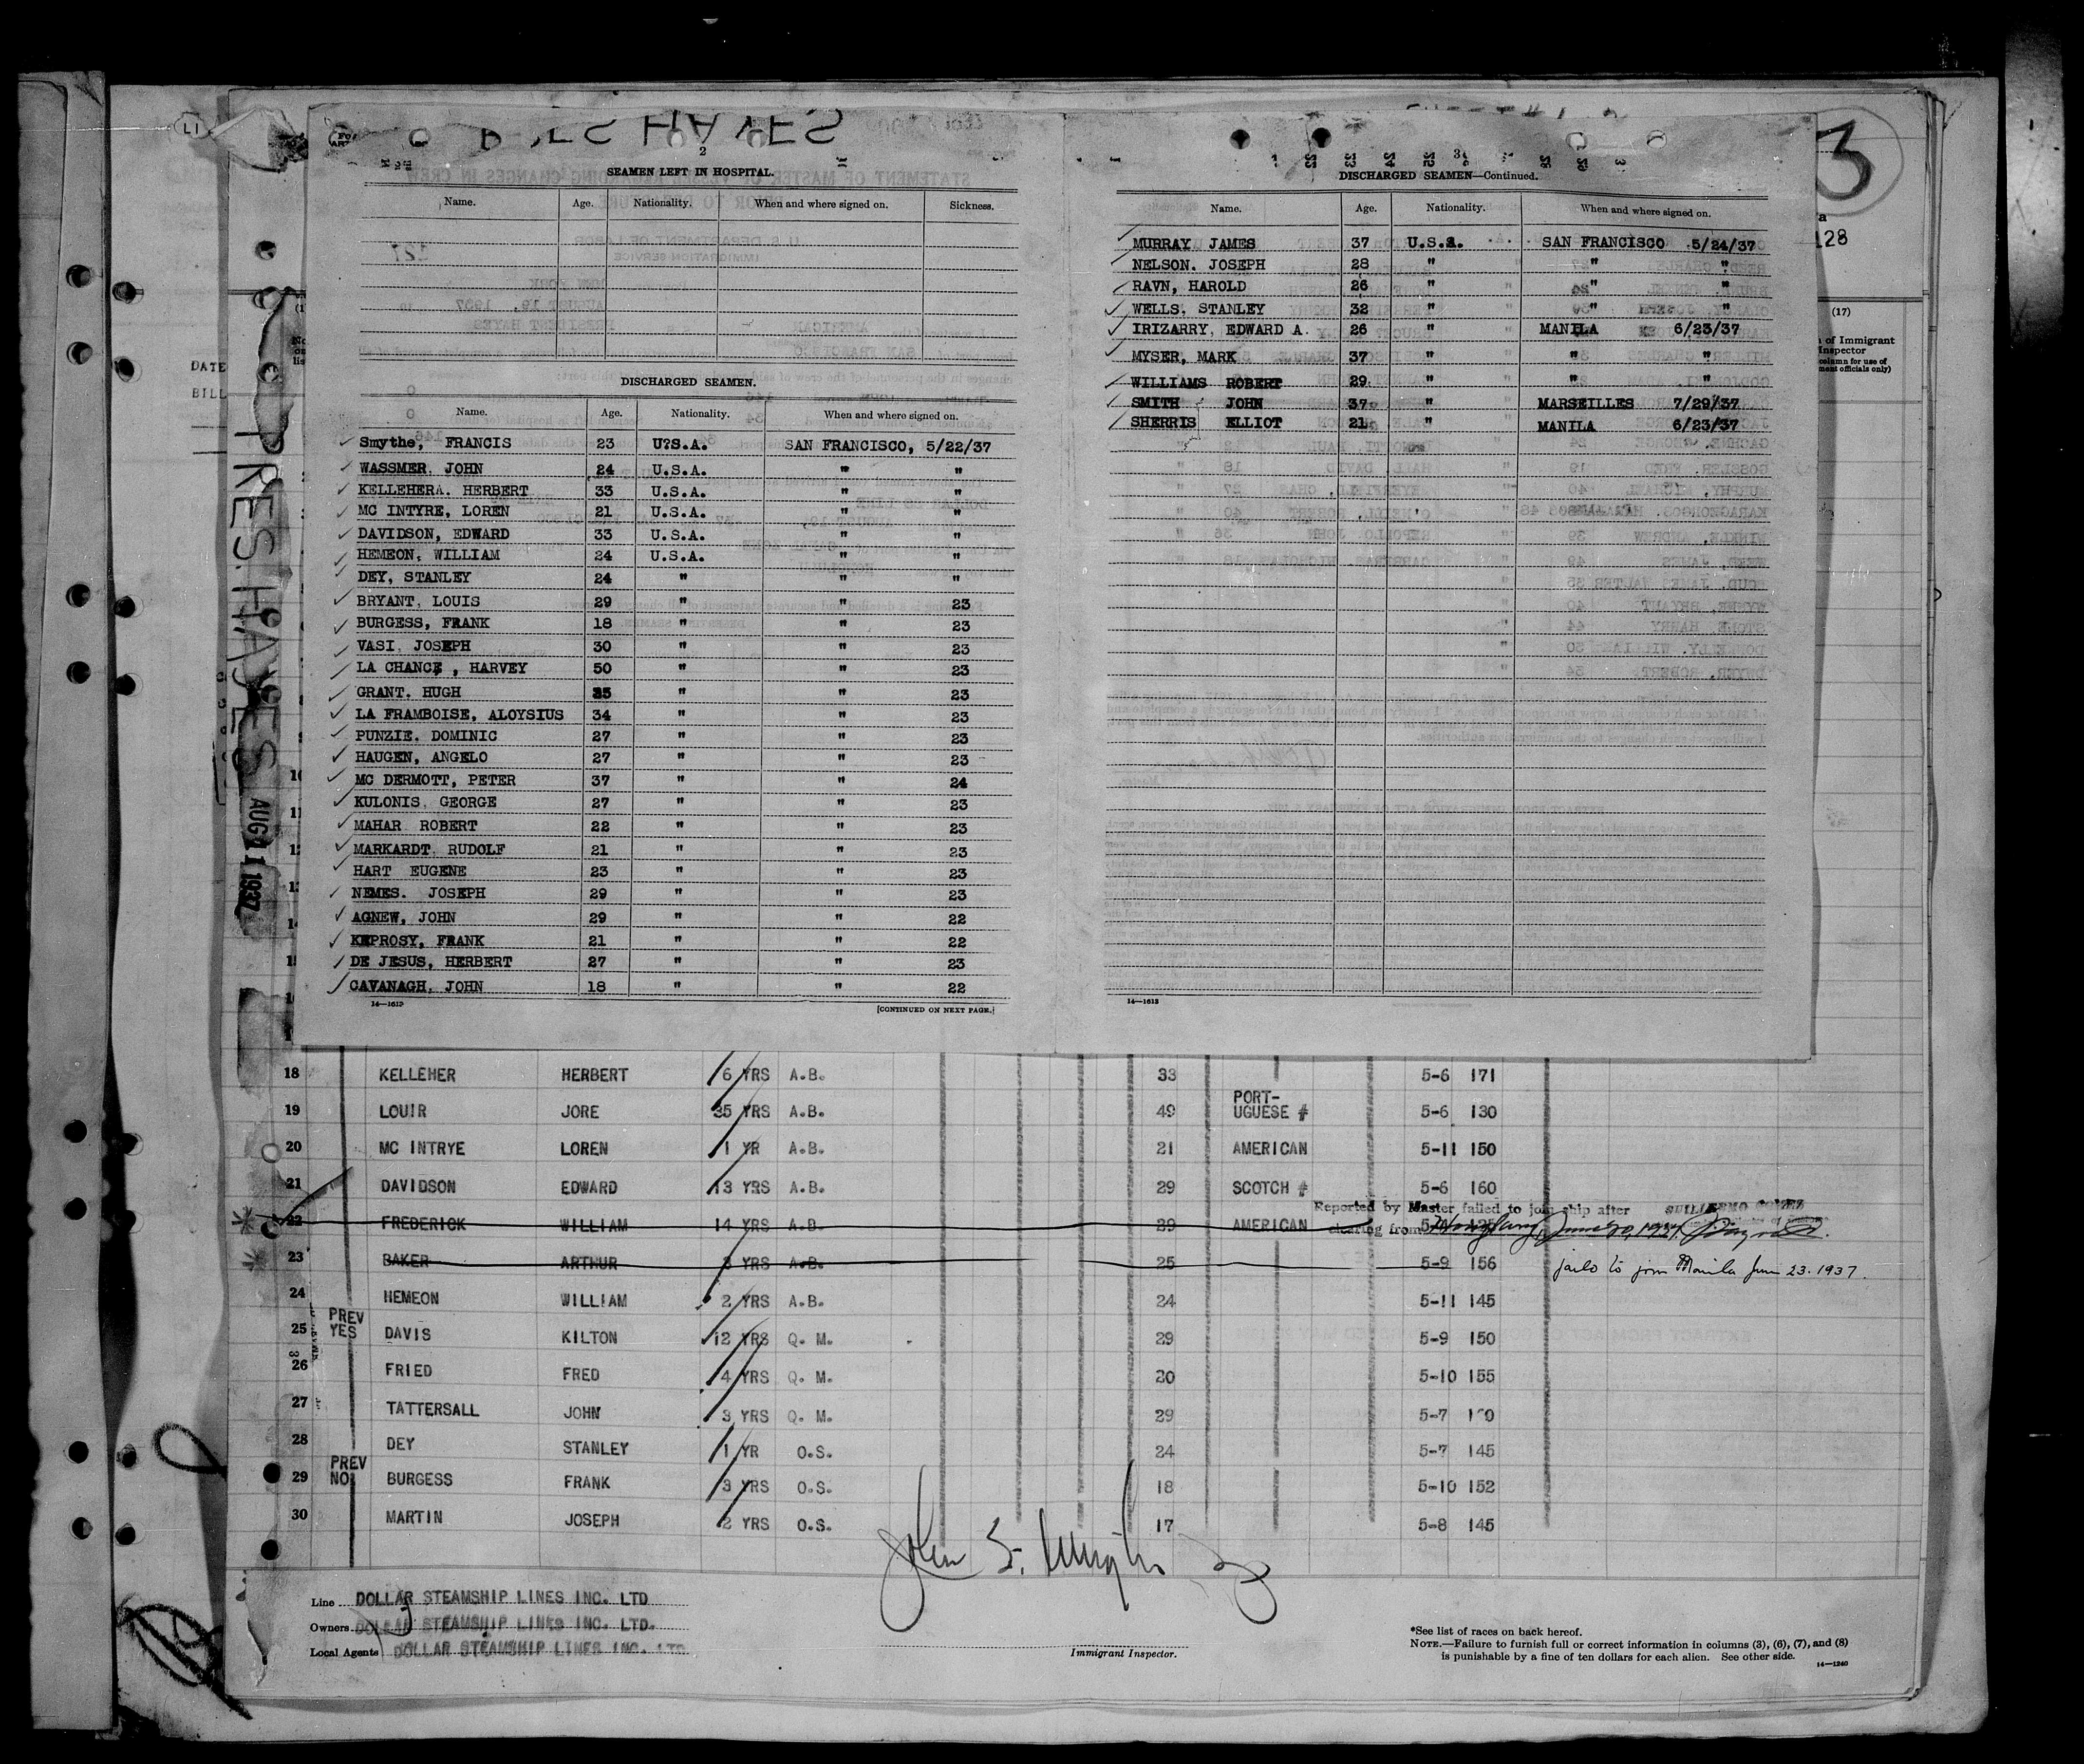 2
SEAMEN LEFT IN HOSPITAL.
Name. Age. Nationality. When and where signed on. Sickness.
DISCHARGED SEAMEN.
Name. Age. Nationality. When and where signed on.
Smythe, FRANCIS 23 U?S.A. SAN FRANCISCO, 5/22/37
WASSMER, JOHN 24 U.S.A. " "
KELLEHERA. HERBERT 33 U.S.A. " "
MC INTYRE, LOREN 21 U.S.A. " "
DAVIDSON, EDWARD 33 U.S.A. " "
HEMEON, WILLIAM 24 U.S.A. " "
DEY, STANLEY 24 " " "
BRYANT, LOUIS 29 " " 23
BURGESS, FRANK 18 " " 23
VASI, JOSEPH 30 " " 23
LA CHANCE , HARVEY 50 " " 23
GRANT. HUGH 35 " " 23
LA FRAMBOISE, ALOYSIUS 34 " " 23
PUNZIE. DOMINIC 27 " " 23
HAUGEN, ANGELO 27 " " 23
MC DERMOTT, PETER 37 " " 24
KULONIS. GEORGE 27 " " 23
MAHAR ROBERT 22 " " 23
MARKARDT. RUDOLF 21 " " 23
HART EUGENE 23 " " 23
NEMES. JOSEPH 29 " " 23
AGNEW, JOHN 29 " " 22
KEPROSY, FRANK 21 " " 22
DE JESUS, HERBERT 27 " " 23
CAVANAGH, JOHN 18 " " 22
14—1613
[CONTINUED ON NEXT PAGE.]
3
DISCHARGED SEAMEN—Continued.
Name. Age. Nationality. When and where signed on.
MURRAY JAMES 37 U.S.A. SAN FRANCISCO 5/24/37
NELSON. JOSEPH 28 " " "
RAVN, HAROLD 26 " " "
WELLS. STANLEY 32 " " "
IRIZARRY, EDWARD A. 26 " MANILA 6/23/37
MYSER, MARK 37 " " "
WILLIAMS ROBERT 29 " " "
SMITH JOHN 37 " MARSEILLES 7/29/37
SHERRIS ELLIOT 21 " MANILA 6/23/37
14—1613
3
128
(17)
of Immigrant
Inspector
column for use of
ment officials only)
L1
DATE
BILL
PRES. HAYES
AUG 1937
18 KELLEHER HERBERT 6 YRS A.B. 33 5-6 171
19 LOUIR JORE 35 YRS A.B. 49 PORT-
UGUESE # 5-6 130
20 MC INTRYE LOREN 1 YR A.B. 21 AMERICAN 5-11 150
21 DAVIDSON EDWARD 13 YRS A.B. 29 SCOTCH # 5-6 160
Reported by Master failed to join ship after GUILLERMO GOMEZ
22 FREDERICK WILLIAM 14 YRS A.B. 39 AMERICAN
clearing from Hongkong, June 20, 1937
23 BAKER ARTHUR 3 YRS A.B. 25 5-9 156 failed to join Manila June 23. 1937.
24 HEMEON WILLIAM 2 YRS A.B. 24 5-11 145
PREV
YES
25 DAVIS KILTON 12 YRS Q. M. 29 5-9 150
26 FRIED FRED 4 YRS Q. M. 20 5-10 155
27 TATTERSALL JOHN 3 YRS Q. M. 29 5-7
28 DEY STANLEY 1 YR O.S. 24 5-7 145
PREV
NO
29 BURGESS FRANK 3 YRS O.S. 18 5-10 152
30 MARTIN JOSEPH 2 YRS O.S. 17 5-8 145
Line DOLLAR STEAMSHIP LINES INC. LTD
Owners DOLLAR STEAMSHIP LINES INC. LTD.
Local Agents DOLLAR STEAMSHIP LINES INC. LTD
Immigrant Inspector.
*See list of races on back hereof.
NOTE.—Failure to furnish full or correct information in columns (3), (6), (7), and (8)
is punishable by a fine of ten dollars for each alien. See other side.
14—1240